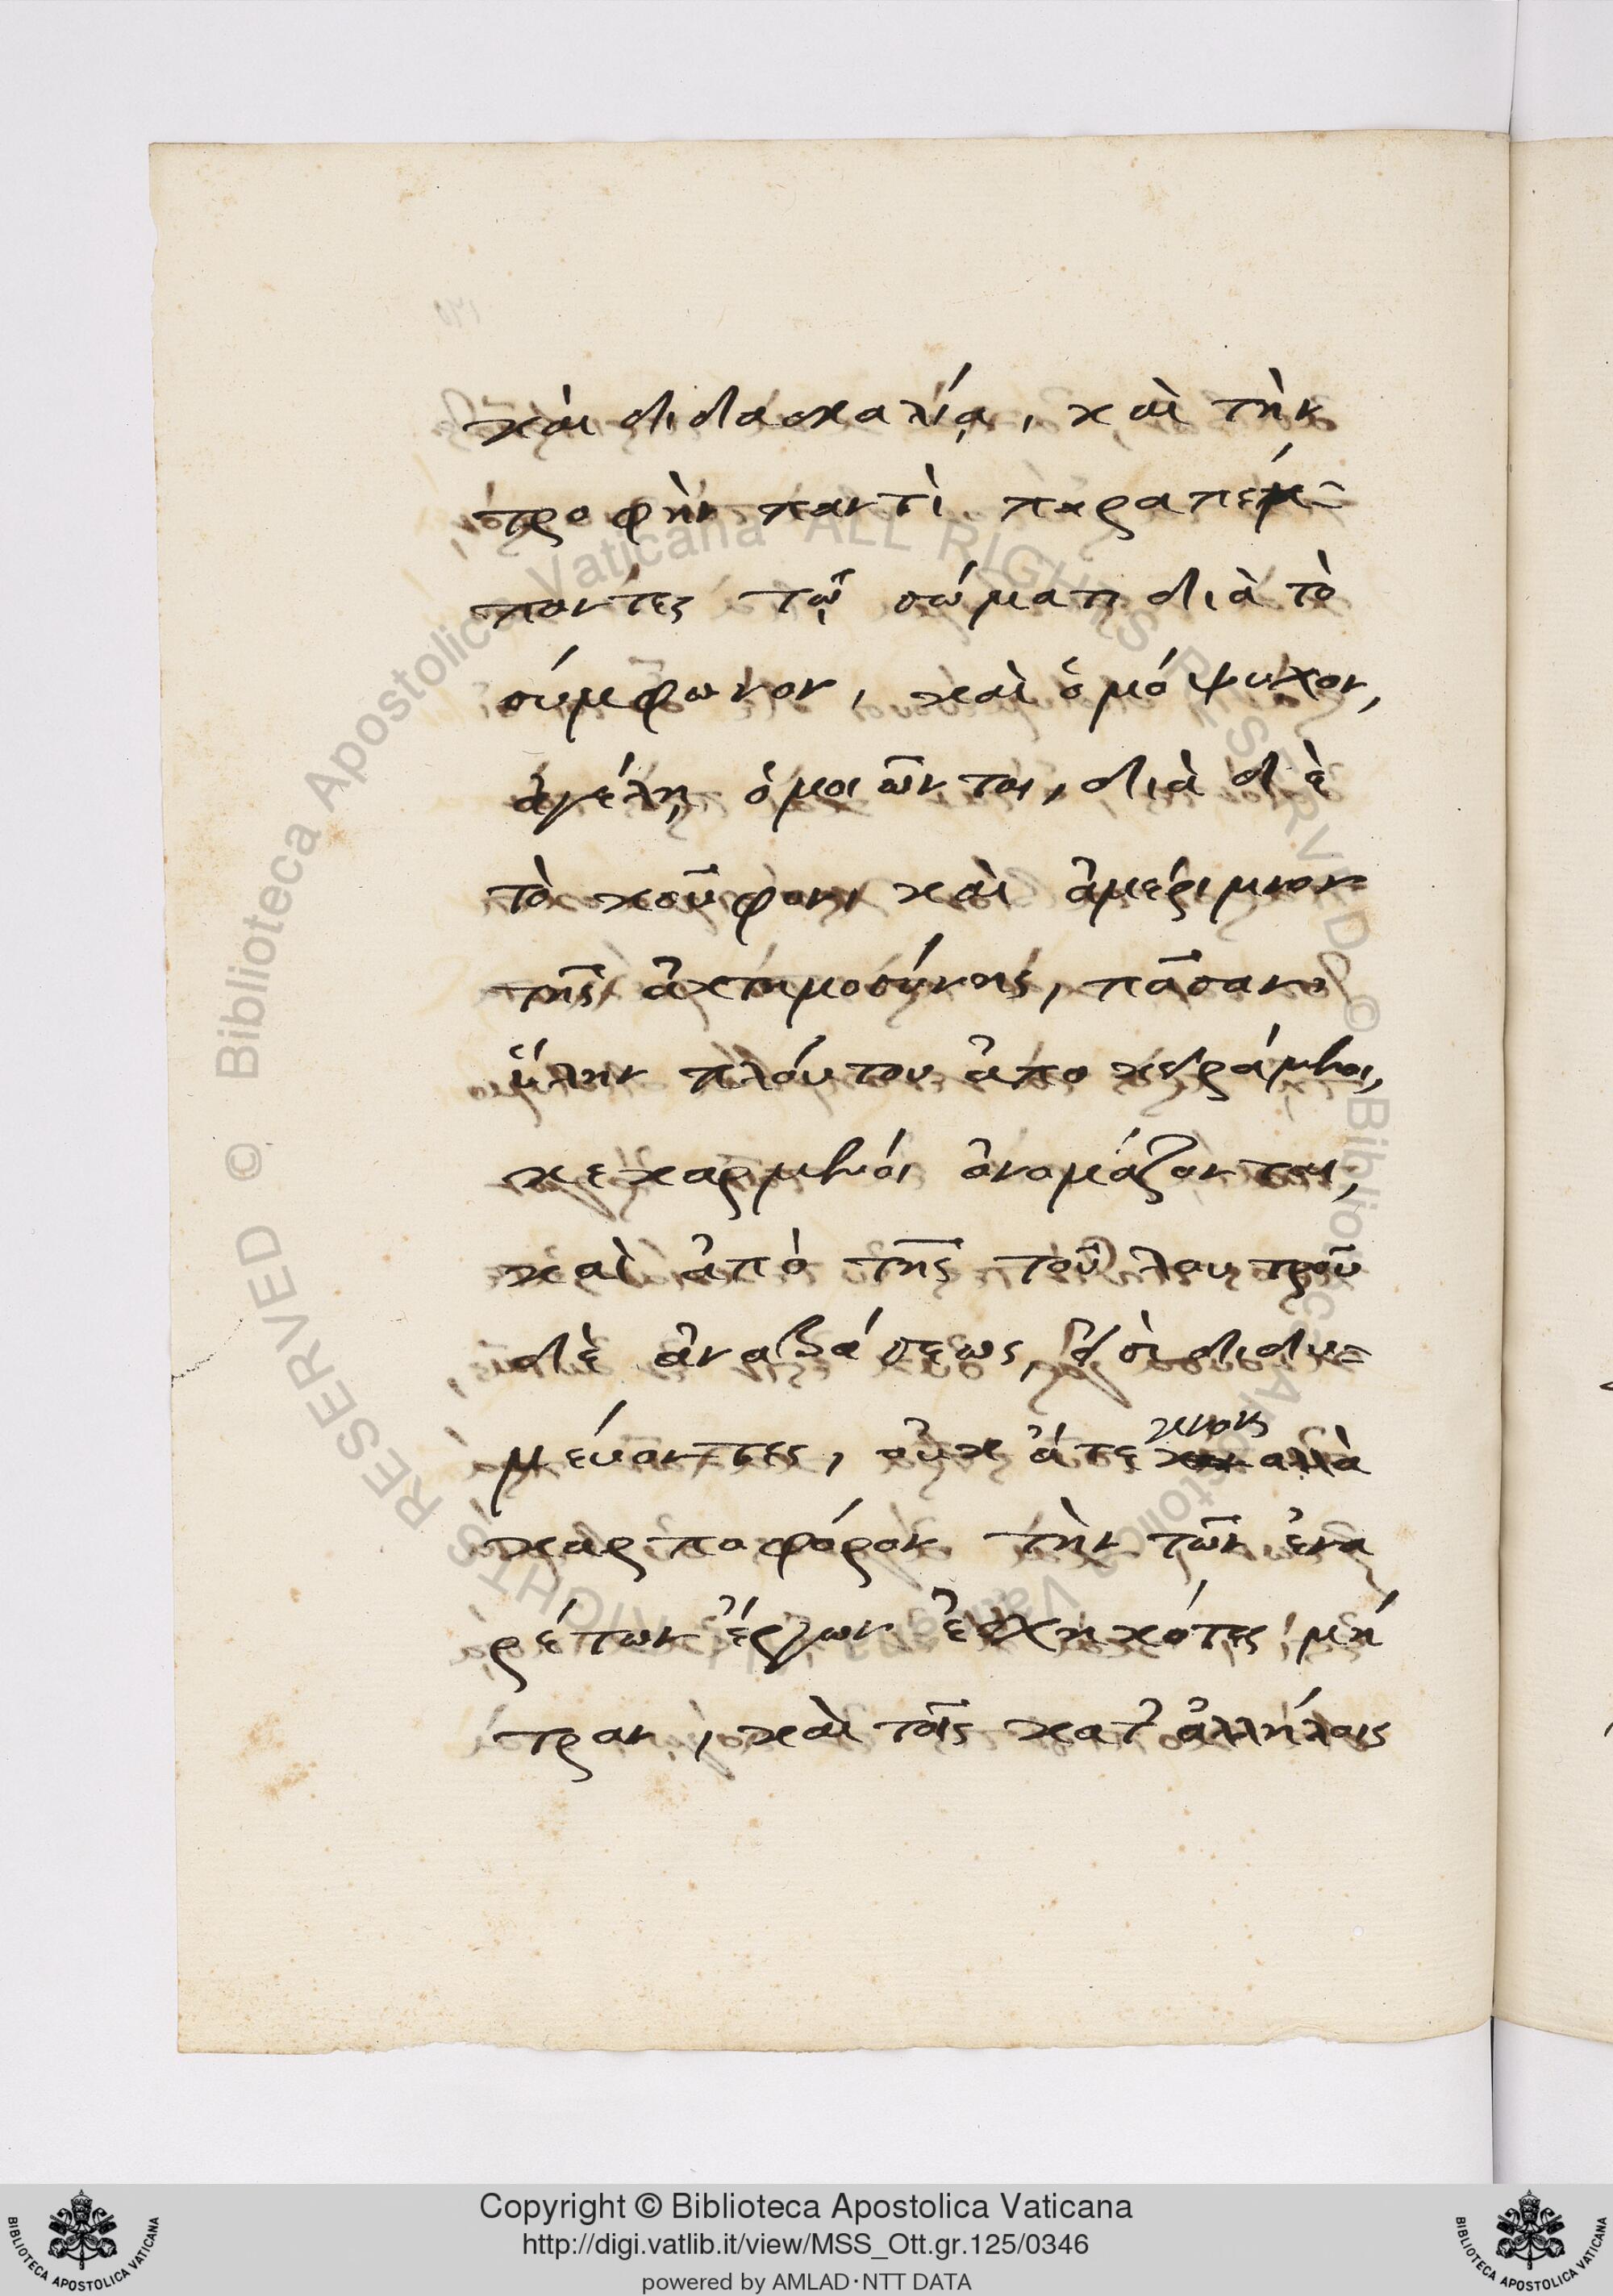 καὶ διδασκαλίᾳ, καὶ τὴν
τροφὴν παντὶ παραπέμ-
ποντες τῷ σώματι διὰ τὸ
σύμφωνον, καὶ ὁμόψυχον,
ἀγέλῃ ὁμοιῶνται, διὰ δὲ
τὸ κοῦφον καὶ ἀμέριμνον
τῆς ἀκτημοσύνης, πᾶσαν
ὕλην πλούτου ἀποκειράμενοι,
κεκαρμένοι ὀνομάζονται,
καὶ ἀπὸ τῆς τοῦ λουτροῦ
δὲ ἀναβάσεως, εἰσὶ διδυ=
μεύοντες, οὐκ ἄτεκνον ἀλλὰ
καρποφόρον τὴν τῶν ἐνα
ρέτων ἔργων ἐσχηκότες μή
τραν, καὶ τοῖς κατ' ἀλλήλοις
Copyright © Biblioteca Apostolica Vaticana
http://digi.vatlib.it/view/MSS_Ott.gr.125/0346
powered by AMLAD·NTT DATA
BIBLIOTECA APOSTOLICA VATICANA
BIBLIOTECA APOSTOLICA VATICANA
© Biblioteca Apostolica Vaticana ALL RIGHTS RESERVED © Biblioteca Apostolica Vaticana ALL RIGHTS RESERVED